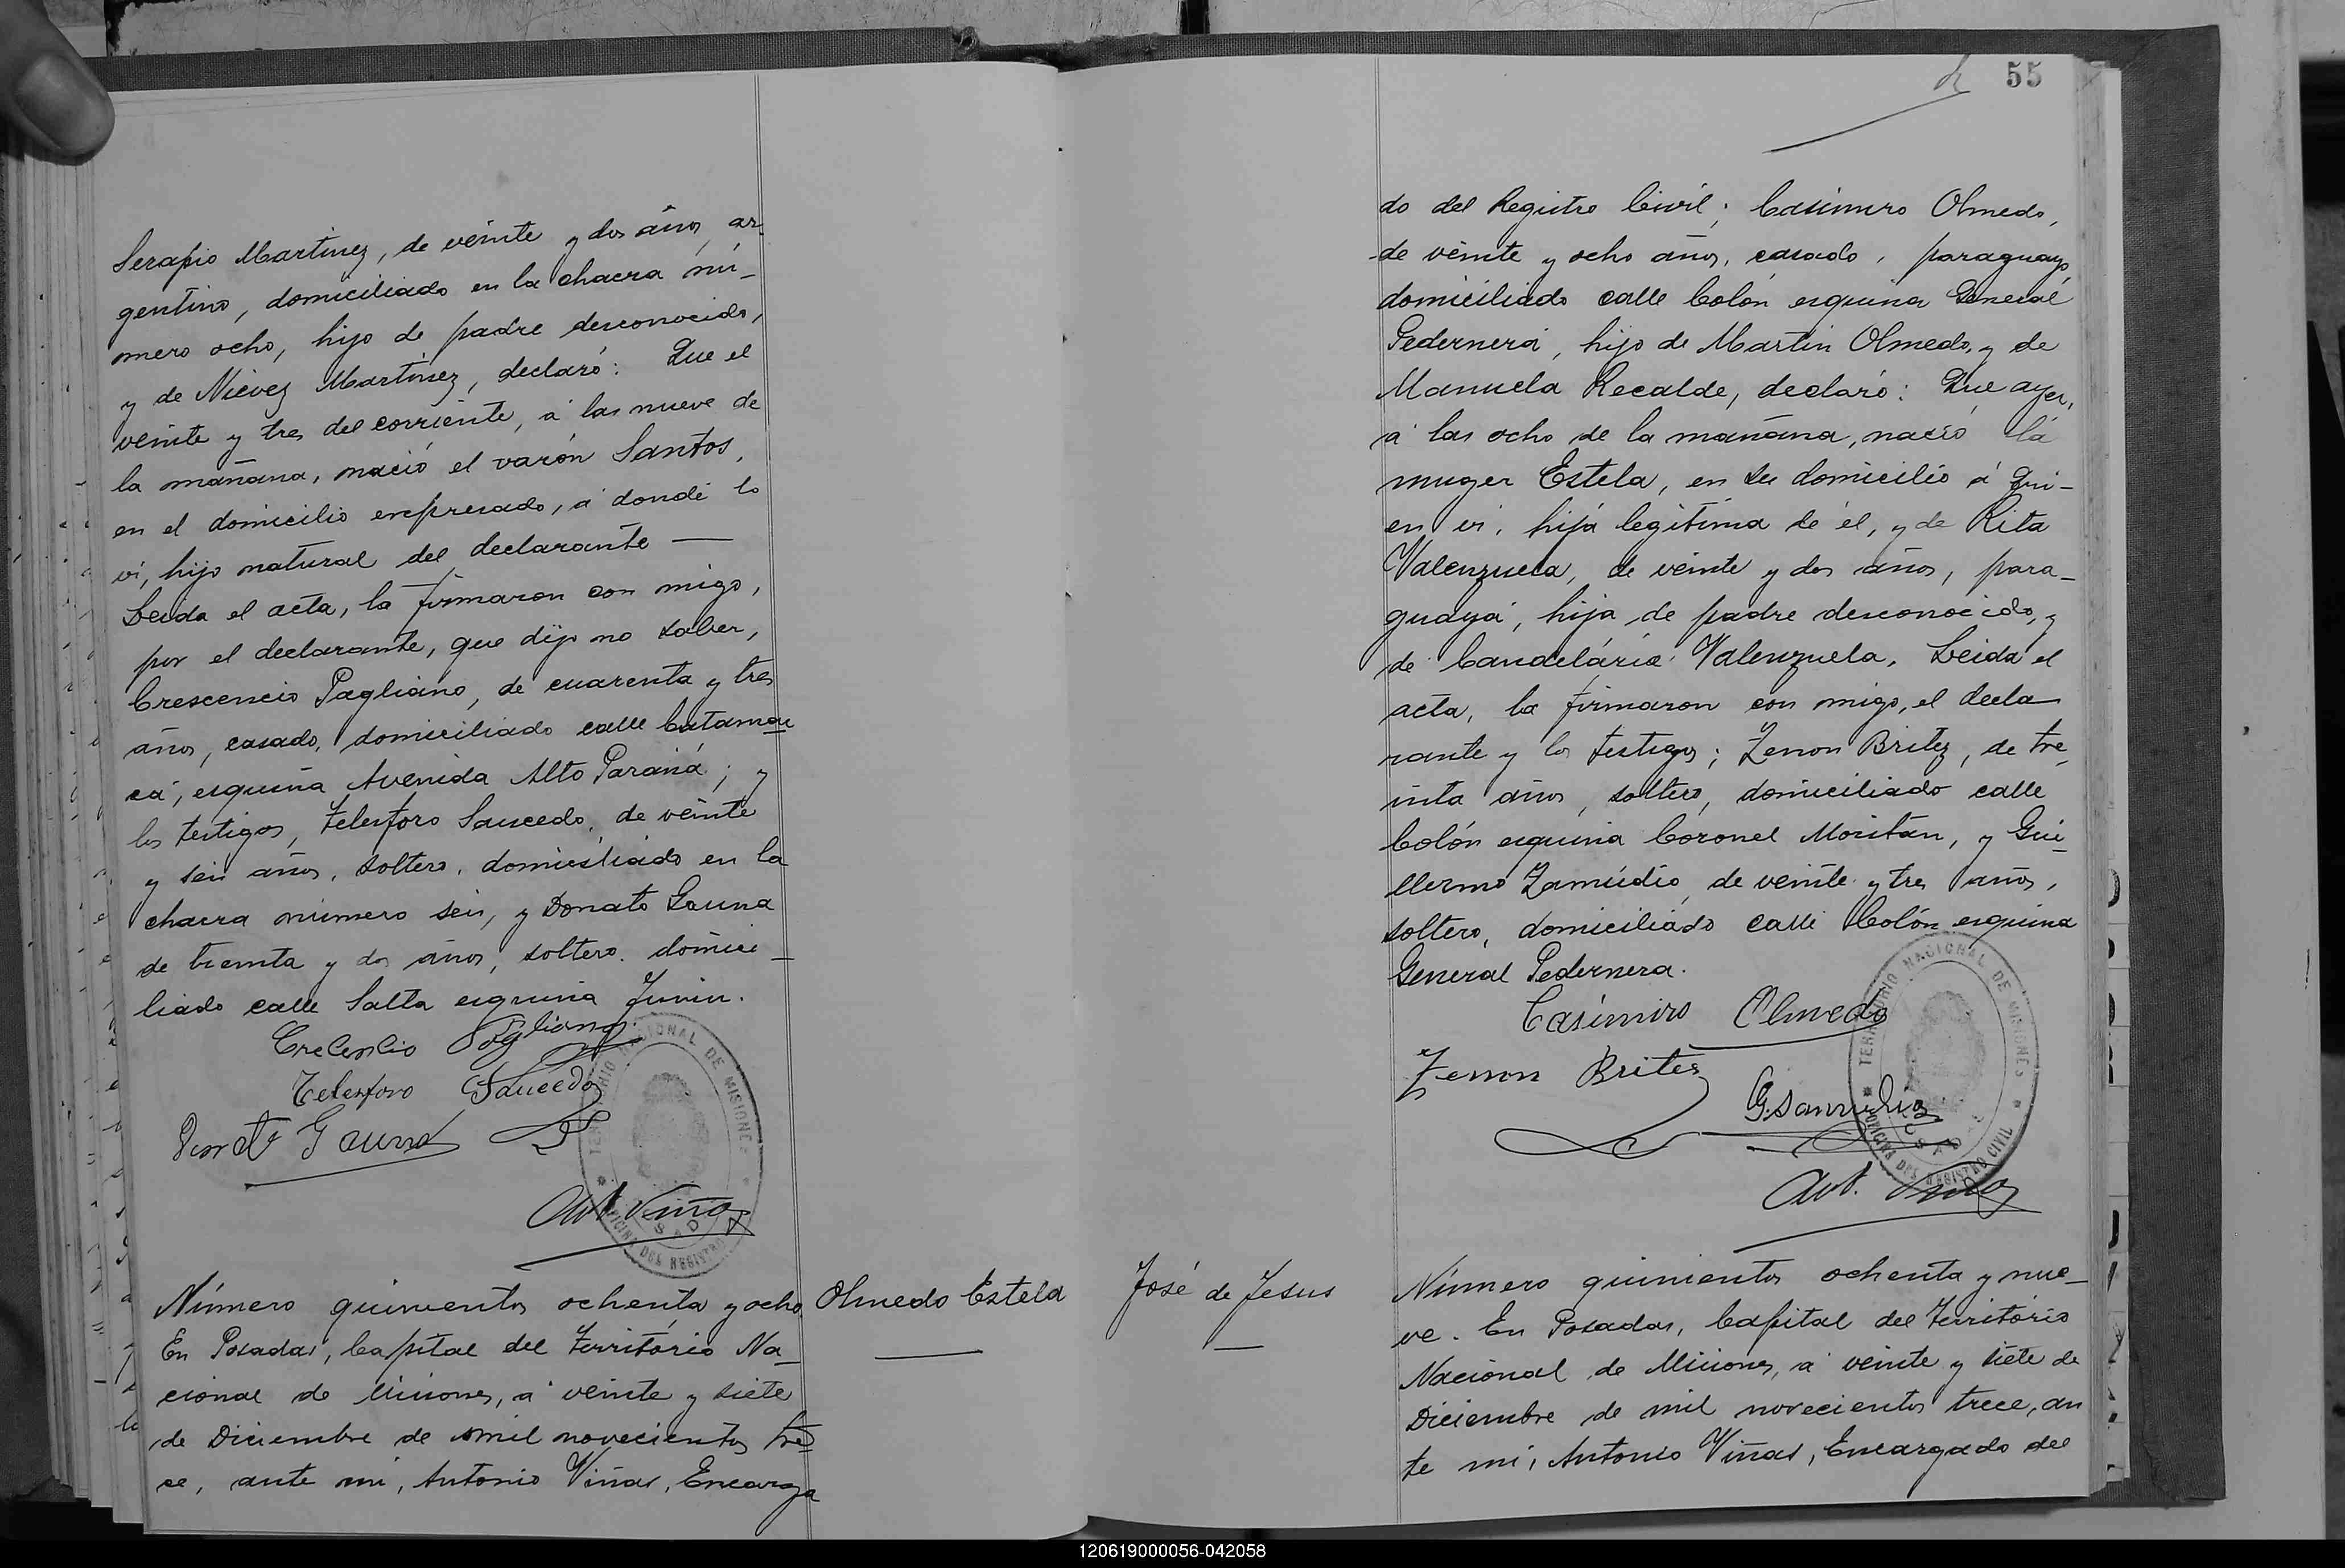 Serapio Martinez, de veinte y dos años, ar-
gentino, domiciliado en la chacra nú-
mero ocho, hijo de padre desconocido,
y de Nieves Martinez, declaró: Que el
veinte y tres del corriente, á las nueve de
la mañana, nació el varón Santos,
en el domicilio expresado, á donde lo
ví, hijo natural del declarante —
Leida el acta, la firmaron con migo,
por el declarante, que dijo no saber,
Crescencio Pagliano, de cuarenta y tres
años, casado, domiciliado calle Catamar
ca, esquina Avenida Alto Paraná; y
los testigos, Telesforo Saucedo, de veinte
y seis años, soltero, domiciliado en la
chacra número seis, y Donato Gauna
de treinta y dos años, soltero, domici-
liado calle Salta esquina Junin.
Crecencio Pagliano
Telesforo Saucedo
Donato Gauna
TERRITORIO NACIONAL DE MISIONES
OFICINA DEL REGISTRO
Ant. Viñas
Número quinientos ochenta y ocho.
Olmedo Estela
En Posadas, Capital del Territorio Na-
cional de Misiones, á veinte y siete
de Diciembre de mil novecientos tre-
ce, ante mi, Antonio Viñas, Encarga
55
do del Registro Civil; Casimiro Olmedo,
de veinte y ocho años, casado, paraguayo,
domiciliado calle Colón esquina General
Pedernera, hijo de Martin Olmedo, y de
Manuela Recalde, declaró: Que ayer,
á las ocho de la mañana, nació la
muger Estela, en su domicilio á qui-
en ví, hija legítima de él, y de Rita
Valenzuela, de veinte y dos años, para-
guaya, hija de padre desconocido, y
de Candelaria Valenzuela. Leida el
acta, la firmaron con migo, el decla
rante y los testigos; Zenon Britez, de tre
inta años, soltero, domiciliado calle
Colón esquina Coronel Moritán, y Gui-
llermo Zamudio, de veinte y tres años,
soltero, domiciliado calle Colón esquina
General Pedernera.
Casimiro Olmedo
Zenon Britez
G. Samudio
TERRITORIO NACIONAL DE MISIONES
OFICINA DEL REGISTRO CIVIL
Ant. Viñas
José de Jesus
Número quinientos ochenta y nue-
ve. En Posadas, Capital del Territorio
Nacional de Misiones, á veinte y siete de
Diciembre de mil novecientos trece, an
te mí, Antonio Viñas, Encargado del
120619000056-042058